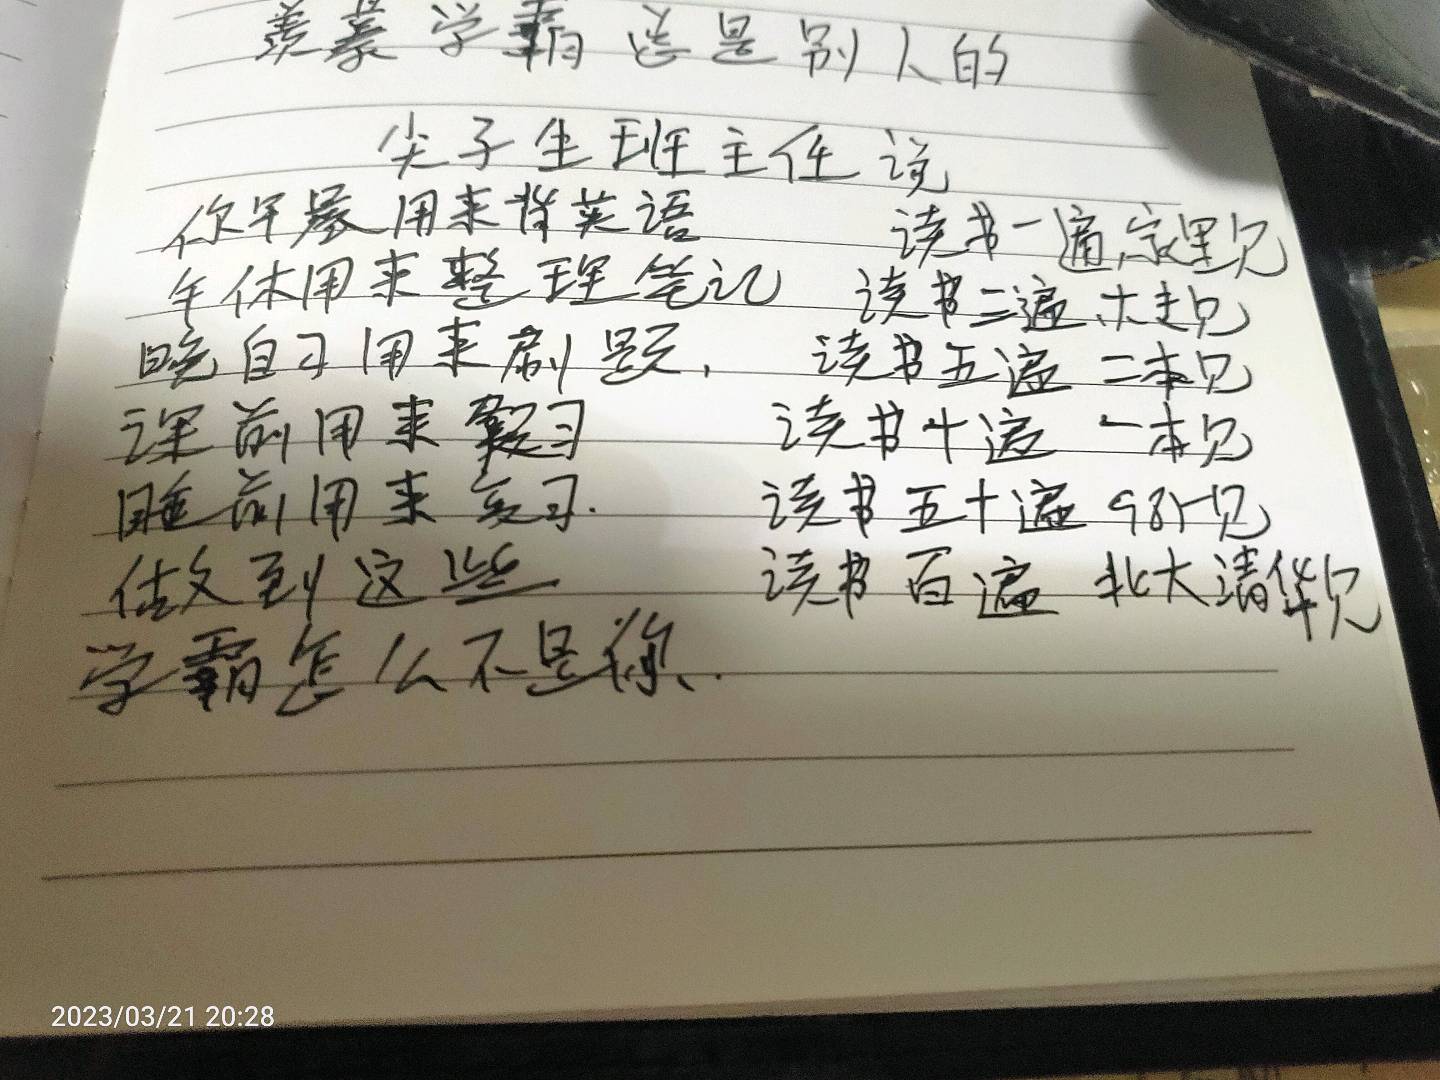 羡慕学霸总是别人的
尖子生班主任说
你早晨用来背英语
午休用来整理笔记
晚自习用来刷题,
课前用来预习
睡前用来复习.
做到这些
学霸怎么不是你.
读书一遍,家里见
读书三遍 大专见
读书五遍 二本见
读书十遍 一本见
读书五十遍 985见
读书百遍 北大清华见
2023/03/21 20:28